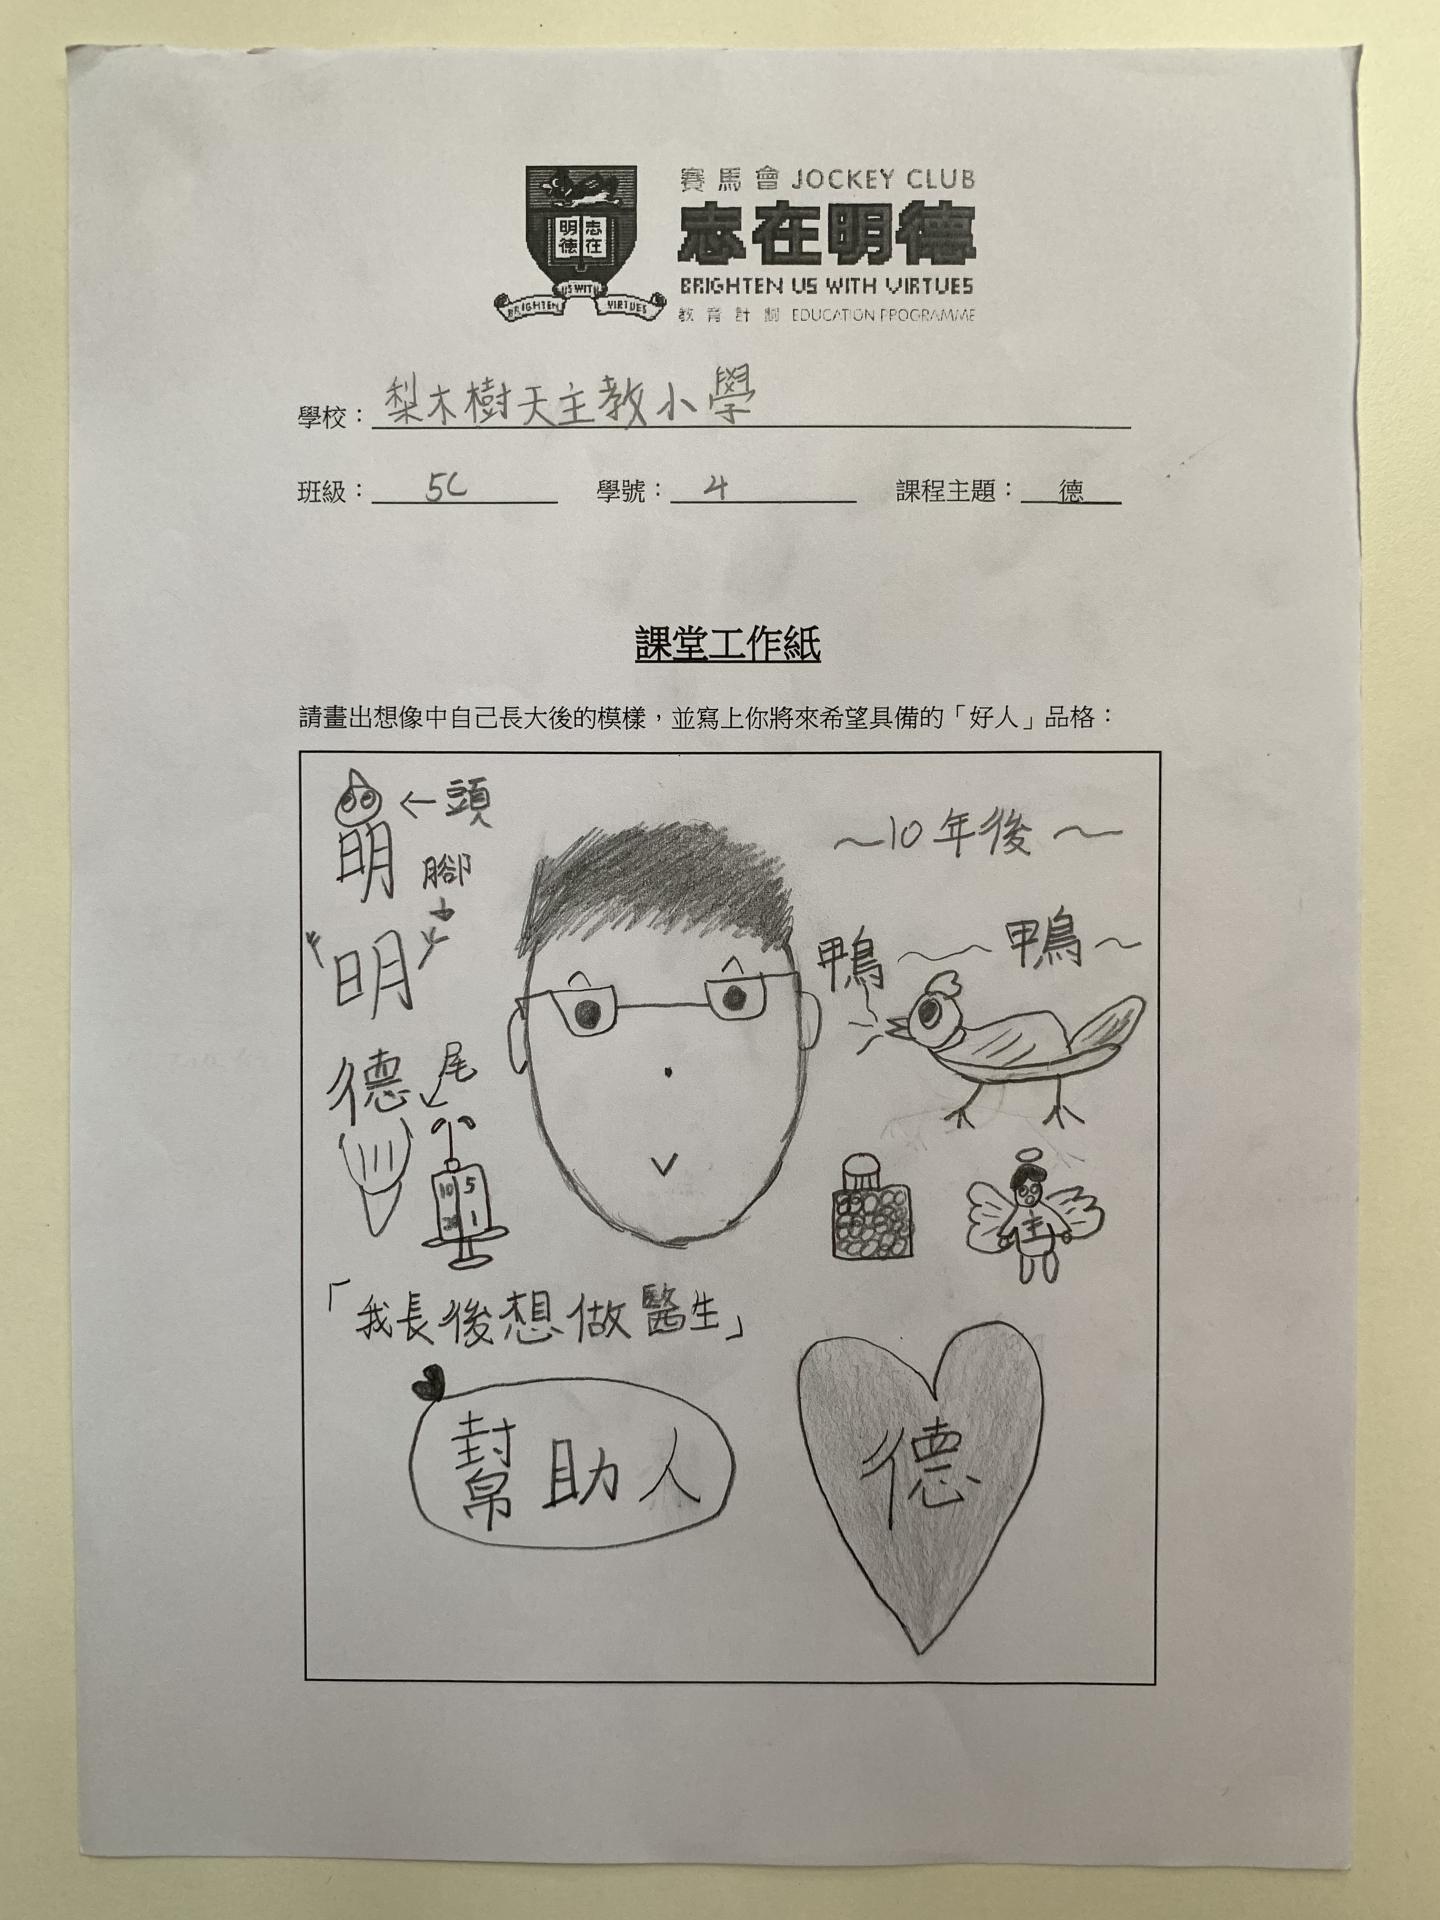 賽馬會 JOCKEY CLUB
志在明德
BRIGHTEN US WITH VIRTUES
教育計劃 EDUCATION PROGRAMME
明德 志在
BRIGHTEN US WITH VIRTUES
學校：梨木樹天主教小學
班級：5C 學號：4 課程主題：德
課堂工作紙
請畫出想像中自己長大後的模樣，並寫上你將來希望具備的「好人」品格：
←頭
明
腳
明
德
尾
~10年後~
鴨~~鴨~
10 5
20 1
主
「我長後想做醫生」
幫助人
德